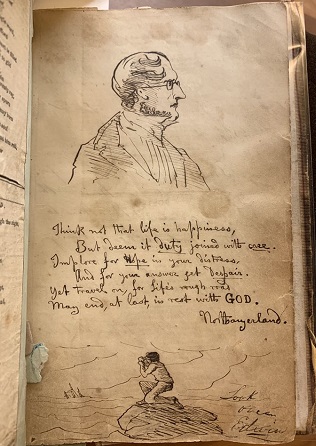 Think not that life is happiness,
But deem it duty joined with care.
Implore for Hope in your distress,
And for your answer get Despair.
Yet travel on, for Life's rough road
May end, at last, in rest with GOD.
Northangerland.
Look
over